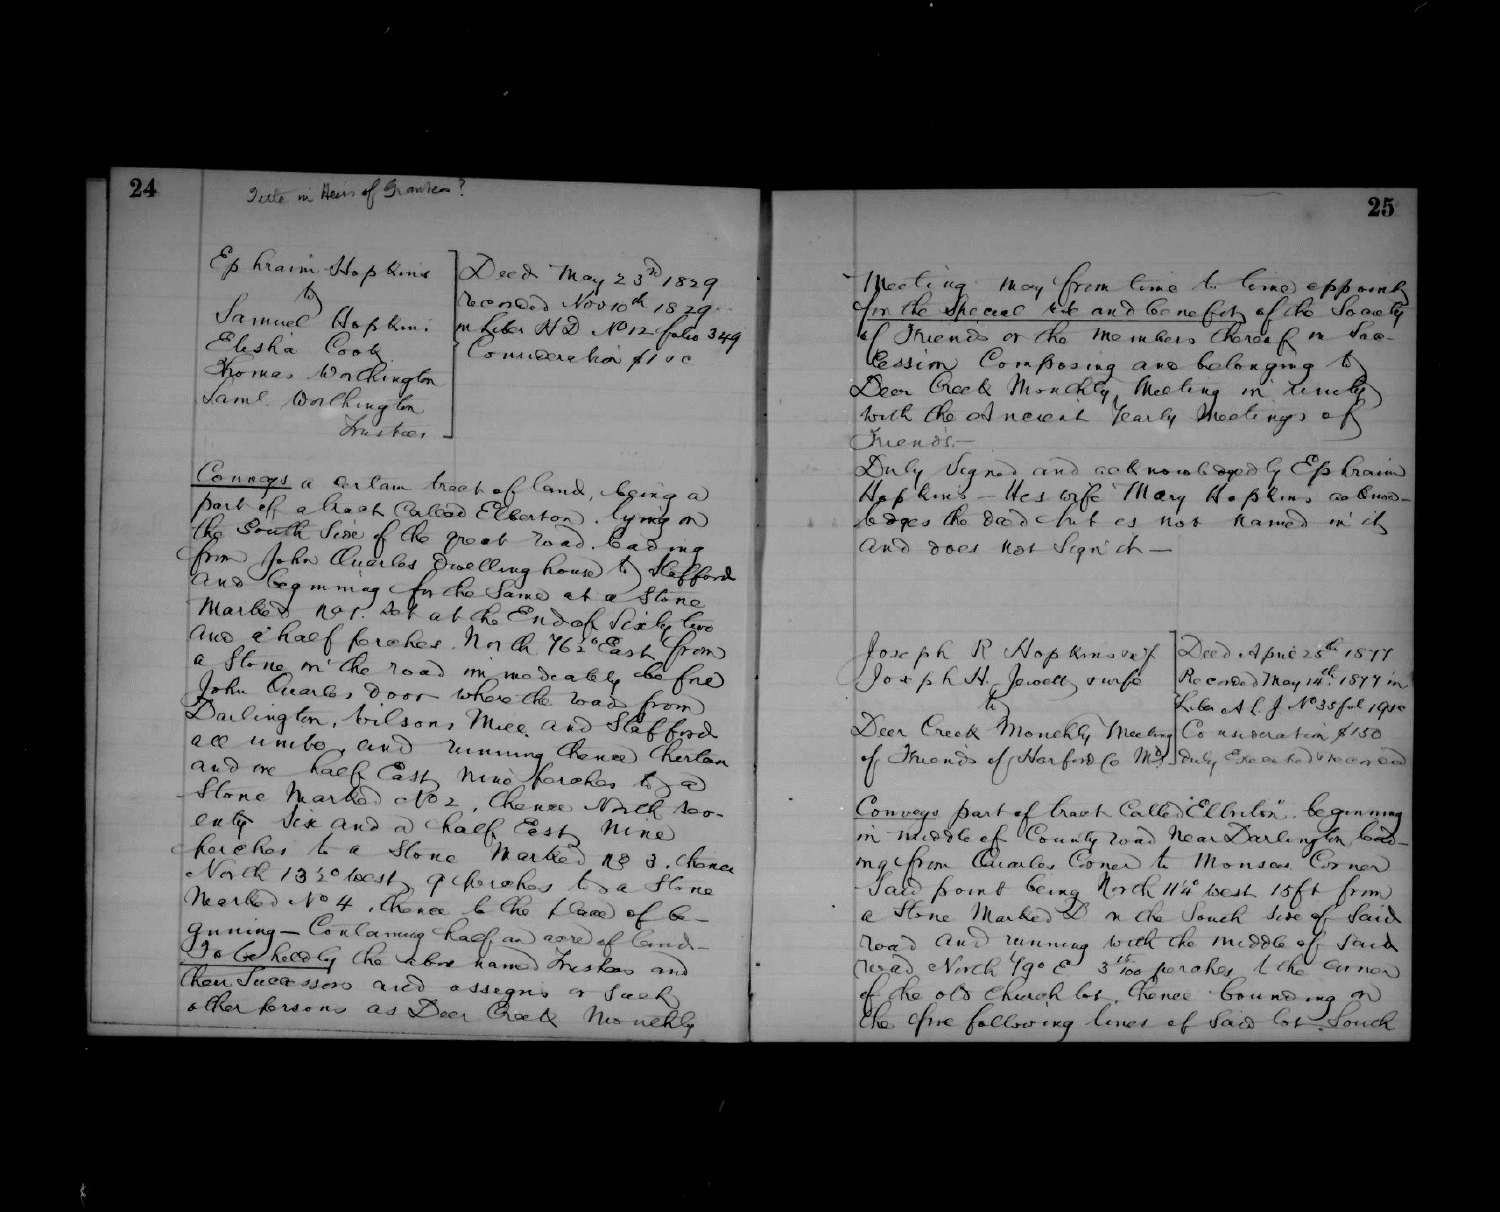 24
Title in Heirs of Grantees?
Ephraim Hopkins
to
Samuel Hopkins
Elisha Cook
Thomas Worthington
Saml. Worthington
Trustees
Deed May 23rd 1829
recorded Nov 10th 1829
in Liber H D No 12 folio 349
Consideration $1 00
Conveys a certain tract of land, being a
part of a tract Called Elberton, lying on
the South Side of the great road leading
from John Quarles dwelling house to Stafford
and beginning for the Same at a Stone
Marked No 1. Set at the End of Sixty two
and a half perches North 76½° East from
a Stone in the road immediately before
John Quarles door where the road from
Darlington, Wilsons Mill and Stafford
all unite, and running thence thirteen
and one half East Nine perches to a
Stone Marked No 2, thence North Sev-
enty Six and a half East Nine
perches to a Stone Marked No 3, thence
North 13½° West, 9 perches to a Stone
Marked No 4, thence to the place of be-
ginning — Containing half an acre of land —
To be held by the above named Trustees and
their Successors and assigns or Such
other persons as Deer Creek Monthly
25
Meeting may from time to time appoint
for the special use and benefit of the Society
of Friends or the members thereof in Suc-
cession Composing and belonging to
Deer Creek Monthly Meeting in unity
with the Ancient Yearly Meetings of
Friends. —
Duly Signed and acknowledged by Ephraim
Hopkins — His wife Mary Hopkins acknow-
ledges the deed but is not named in it
and does not Sign it —
Joseph R Hopkins & wf
Joseph H. Jewett & wife
to
Deer Creek Monthly Meeting
of Friends of Harford Co Md.
Deed April 25th 1877
Recorded May 14th 1877 in
Liber A L J No 35 fol 19 &c
Consideration $150
duly Executed & recorded
Conveys part of tract Called "Elberton" beginning
in middle of County road Near Darlington lead-
ing from Quarles Corner to Monses Corner
Said point being North 11¼° West 15 ft from
a Stone Marked D on the South Side of Said
road and running with the middle of Said
road North 79° E 3 /100 perches to the corner
of the old church lot, thence bounding on
the five following lines of Said lot. South